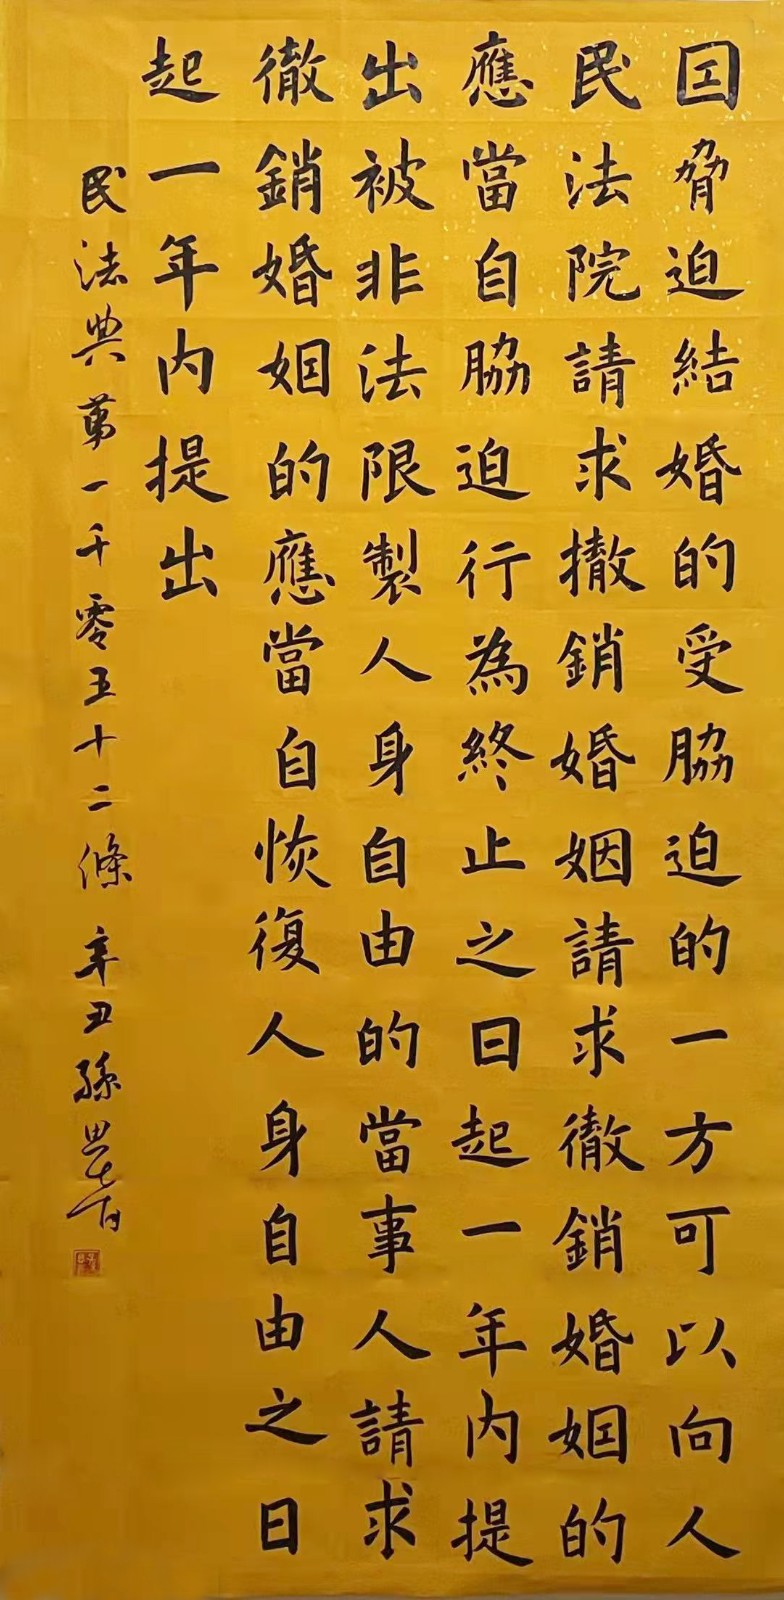 囙脅迫結婚的受脇迫的一方可以向人
民法院請求撤銷婚姻請求徹銷婚姻的
應當自脇迫行為終止之日起一年内提
出被非法限製人身自由的當事人請求
徹銷婚姻的應當自恢復人身自由之日
起一年内提出
民法典第一千零五十二條 辛丑孫